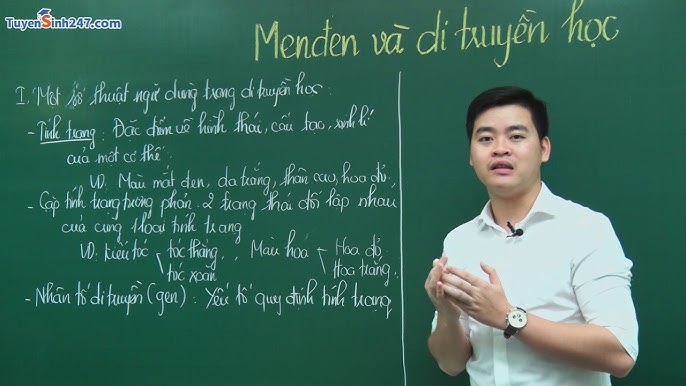 TuyenSinh247.com
Menđen và di truyền học
I. Một số thuật ngữ dùng trong di truyền học:
- Tính trạng: Đặc điểm về hình thái, cấu tạo, sinh lí
của một cơ thể.
VD: Màu mắt đen, da trắng, thân cao, hoa đỏ,
- Cặp tính trạng tương phản: 2 trạng thái đối lập nhau
của cùng 1 loại tính trạng
VD: kiểu tóc tóc thẳng, Màu hoa Hoa đỏ,
tóc xoăn Hoa trắng,
- Nhân tố di truyền (gen): Yếu tố quy định tính trạng